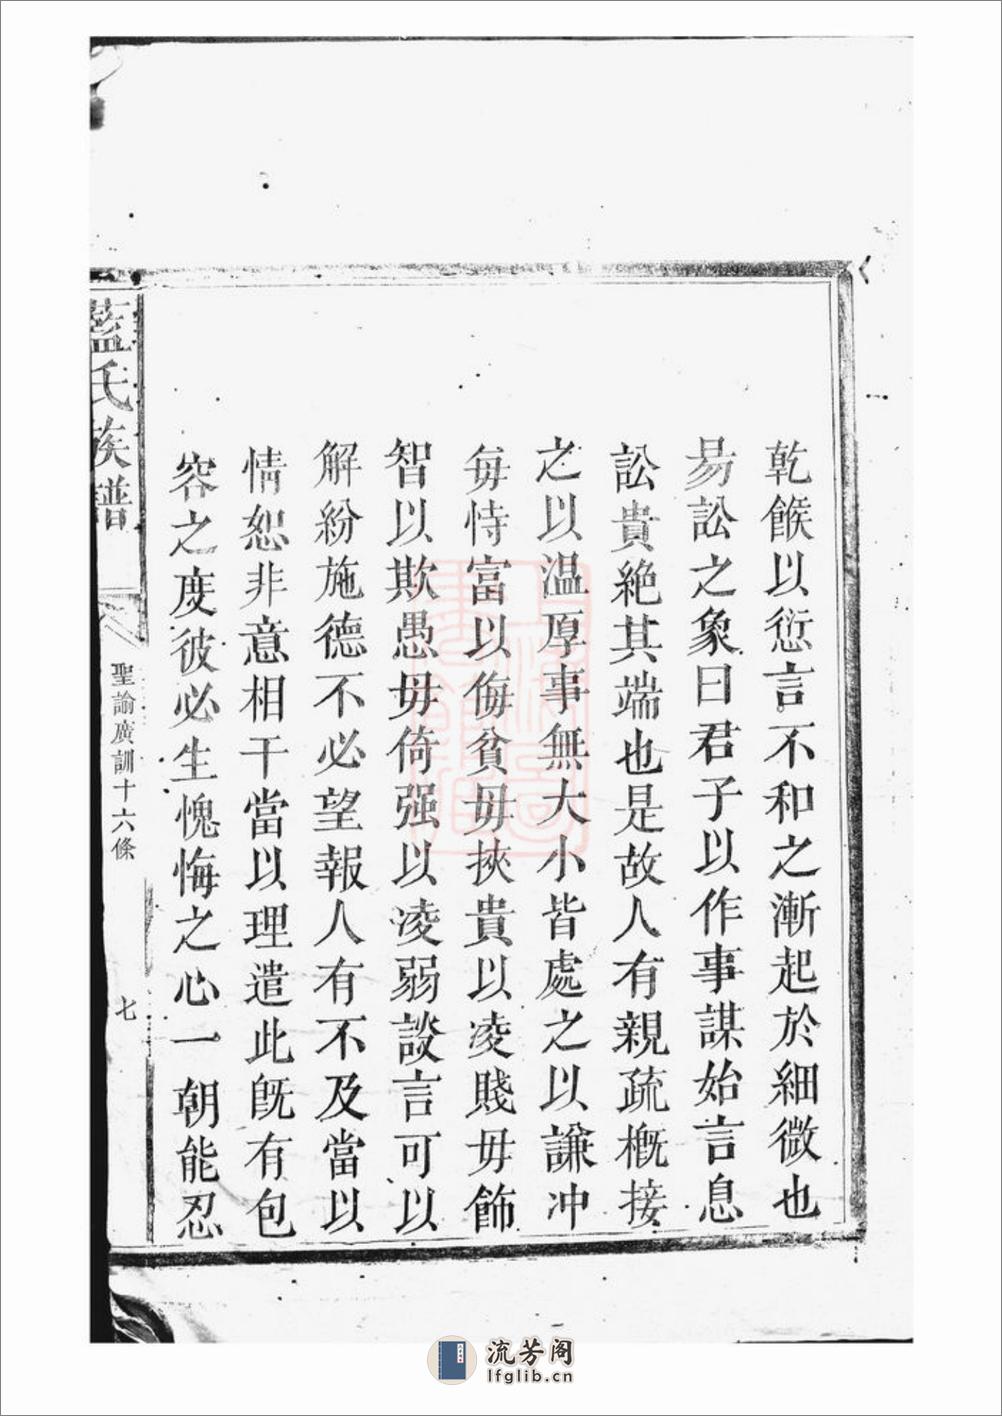 乾餱以愆言不和之漸起於細微也
易訟之象曰君子以作事謀始言息
訟貴絶其端也是故人有親疏槪接
之以温厚事無大小皆處之以謙冲
毎恃富以侮貧毋挾貴以凌賤毋飾
智以欺愚毋倚强以凌弱談言可以
解紛施德不必望報人有不及當以
情恕非意相干當以理遣此旣有包
容之度彼必生愧悔之心一朝能忍
藍氏族譜
聖諭廣訓十六條
七
流芳阁
lfglib.cn